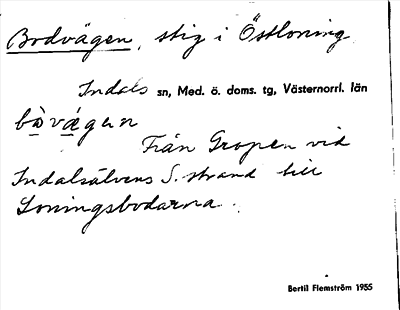 Bodvägen, stig i Östloning.
Indals sn, Med. ö. doms. tg, Västernorrl. län
bòvä̀gen
Från Gropen vid
Indalsälvens S. strand till
Loningsbodarna.
Bertil Flemström 1955